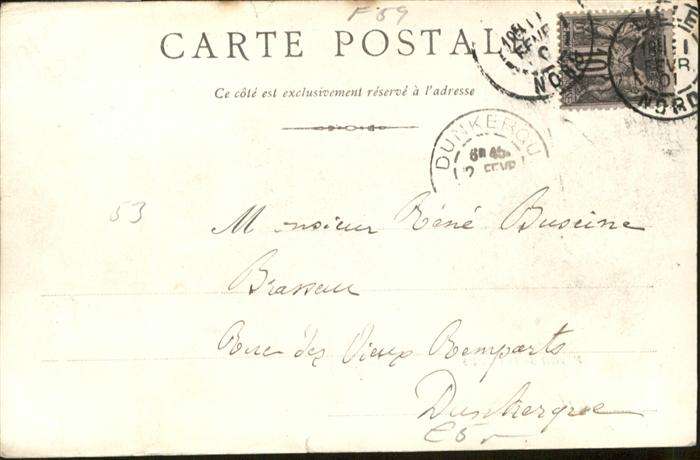 F 59
CARTE POSTAL
Ce côté est exclusivement réservé à l'adresse
10
FEVR
NORD
FEVR
01
NORD
DUNKERQU
6H 45
2 FEVR
53
Monsieur Réné Buscine
Brasseur
Rue des Vieux Remparts
Dunkerque